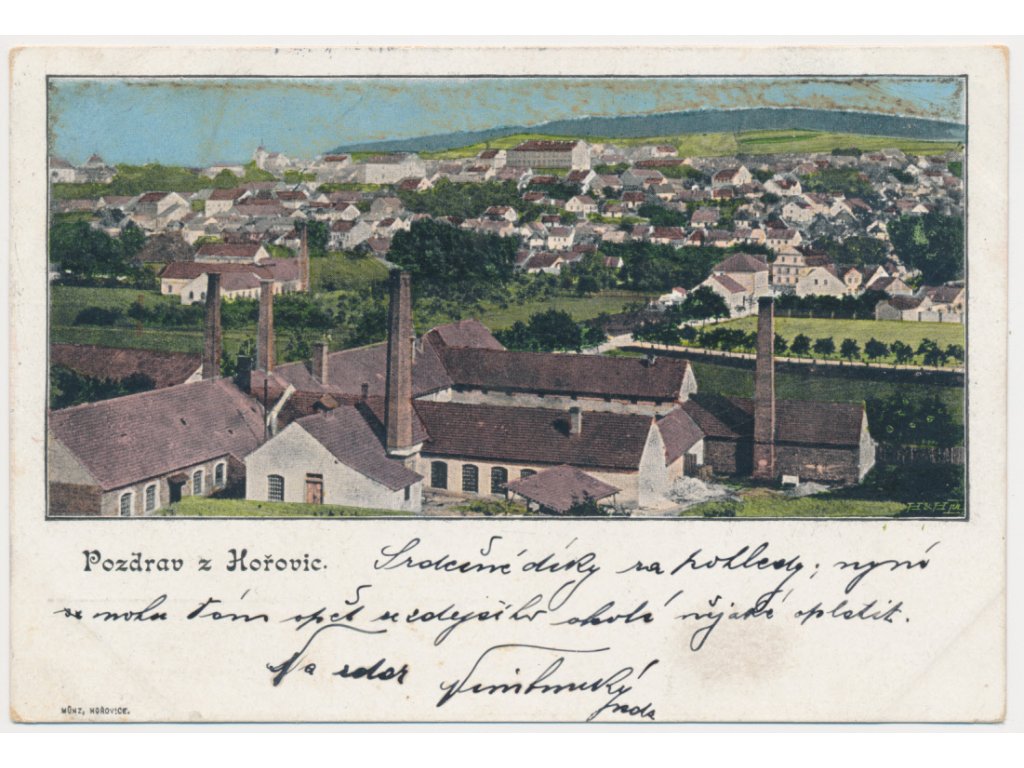 Pozdrav z Hořovic. Srdečné díky za pohledy; nyní
mohu Vám opět zdejšího okolí nějaké oplatit.
Na zdar
MÜNZ, HOŘOVICE.